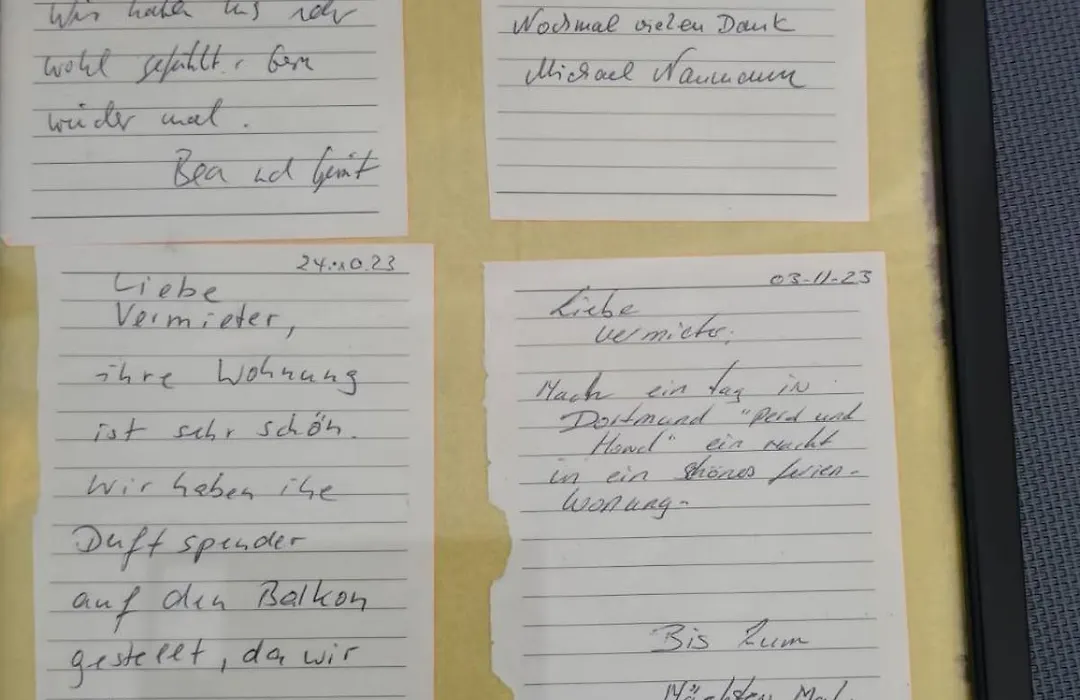 Wir haben uns sehr
wohl gefühlt. Gern
wieder mal.
Bea und Gerrit
Nochmal vielen Dank
Michael Naumann
24.10.23
Liebe
Vermieter,
ihre Wohnung
ist sehr schön.
Wir haben ihe
Duftspender
auf den Balkon
gestellt, da wir
03-11-23
Liebe
vermieter,
Nach ein tag in
Dortmund "Perd und
Hond" ein nacht
in ein shönes ferien-
Wonung-
Bis Zum
Nächsten Mal